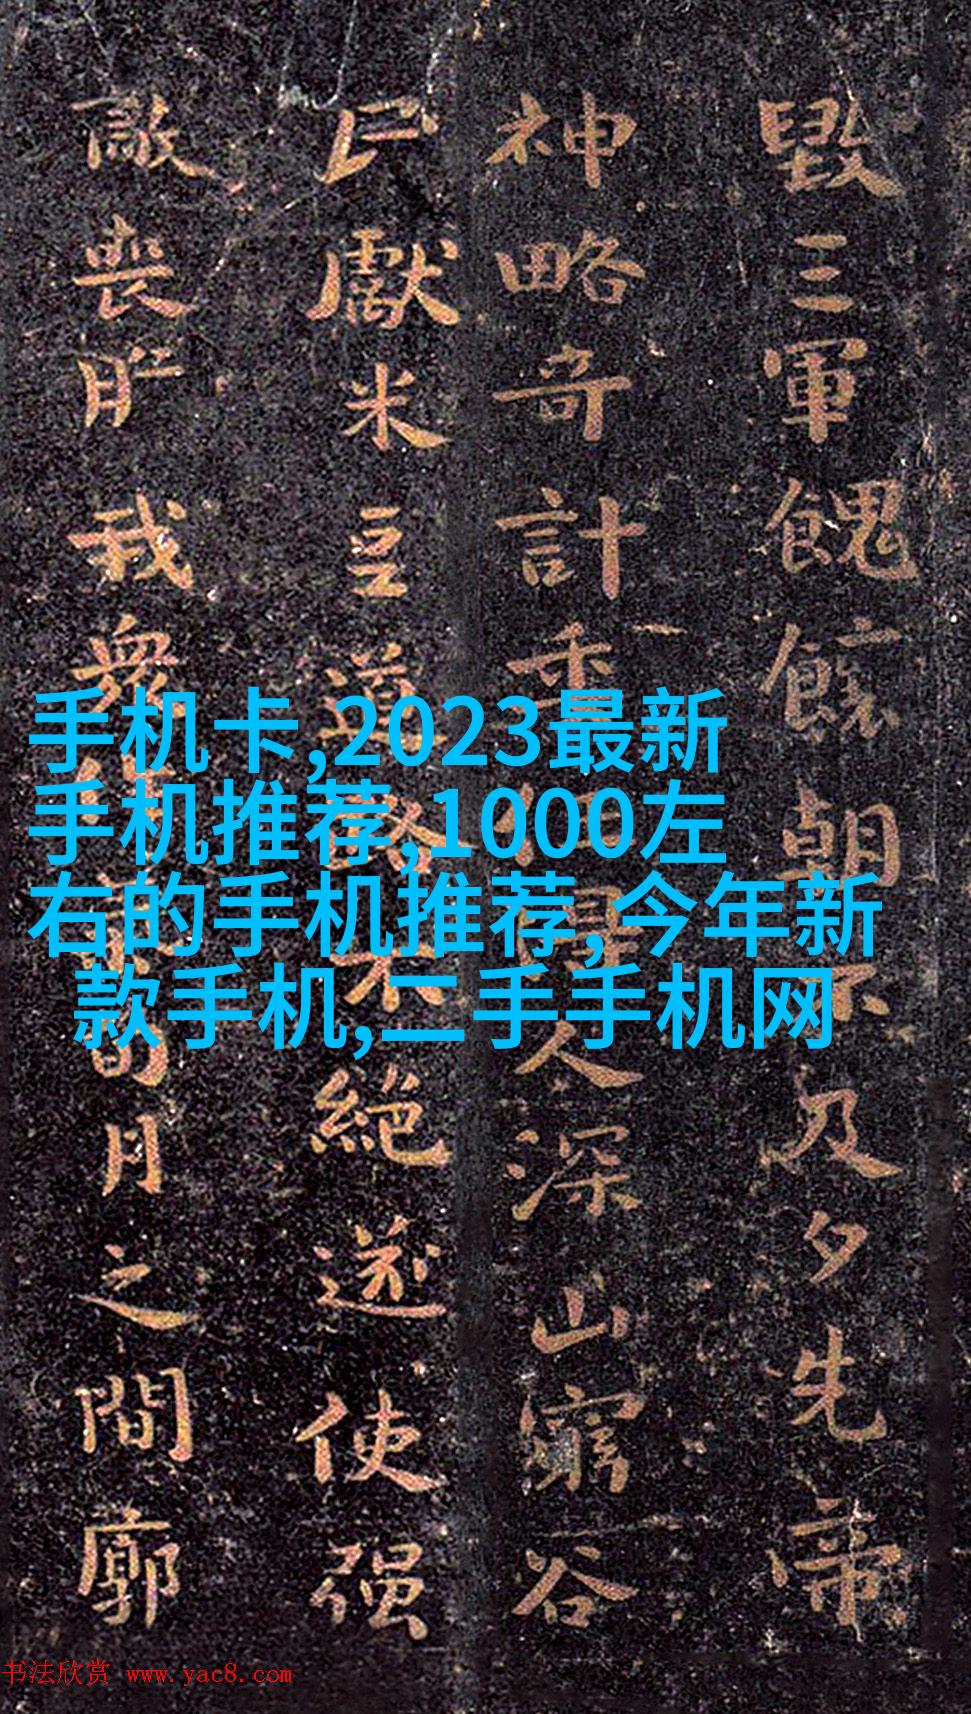 毀三軍餽饟朝不及夕先帝
神略奇計委得人深山窮谷
民獻米豆道路不絕遂使强
敵喪膽我衆作旬月之間廓
手机卡,2023最新
手机推荐,1000左
右的手机推荐,今年新
款手机,二手手机网
书法欣赏 www.yac8.com